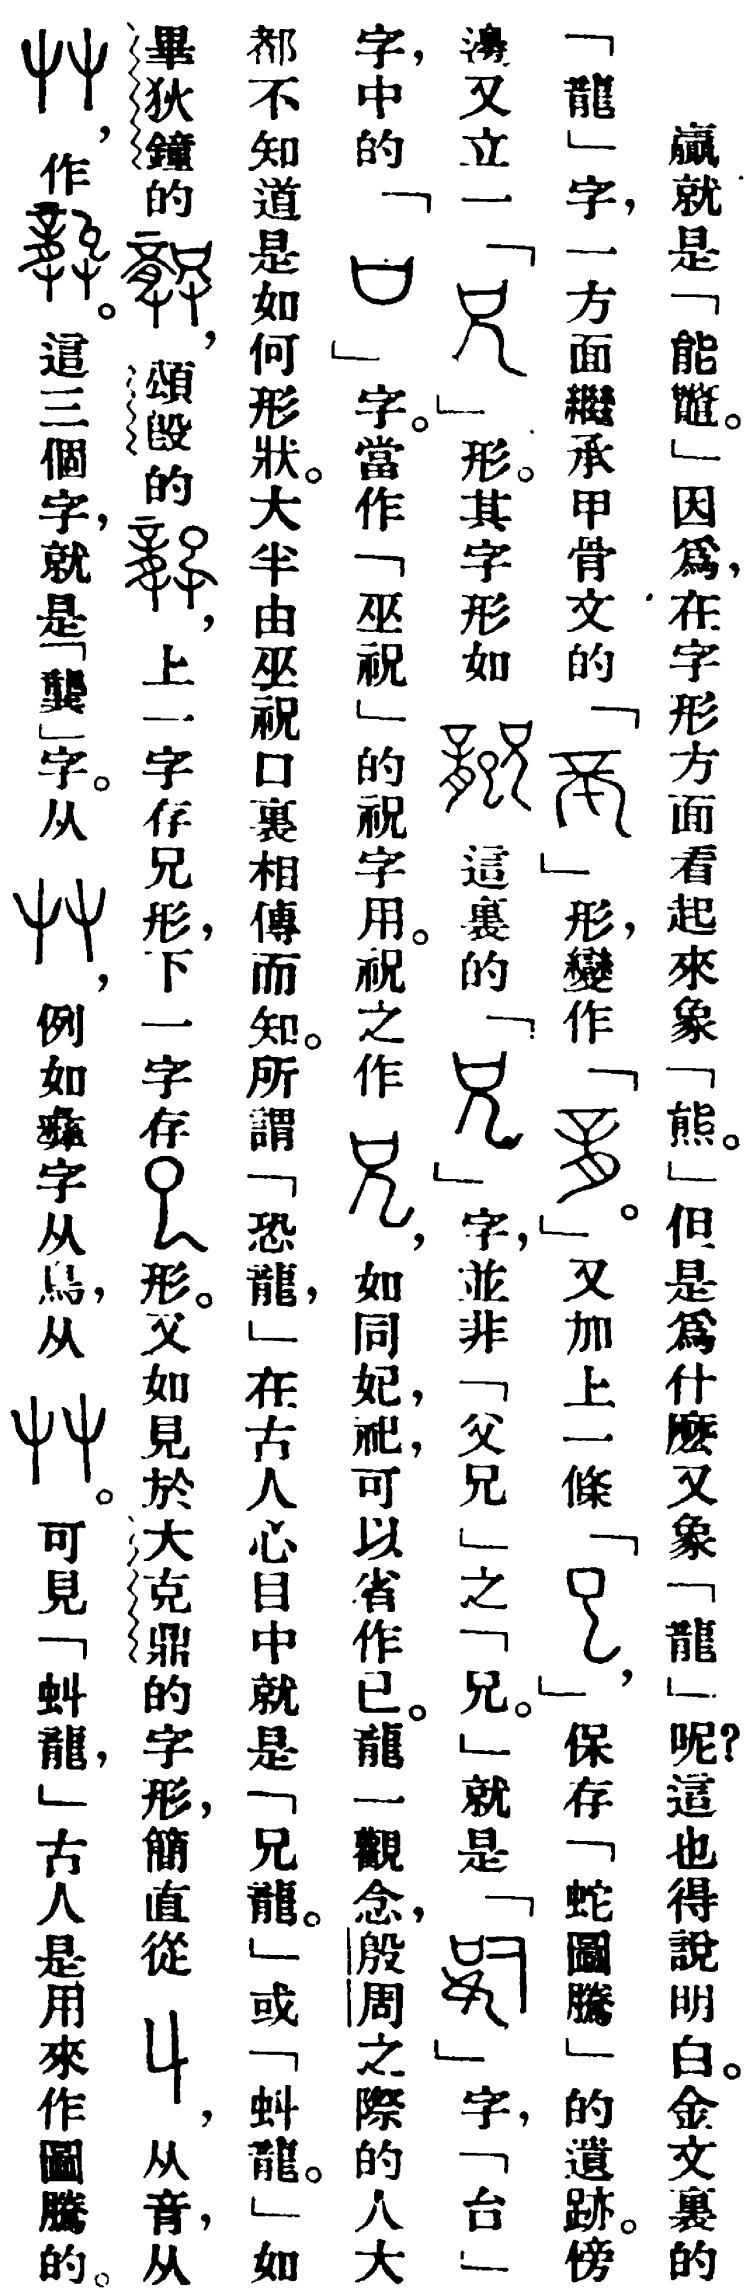 就是「能。」因爲，在字形方面看起來象「熊。」但是爲什麼又象「龍」呢？這也得說明白。金文裏的
「龍」字，一方面繼承甲骨文的「」形，變作「。」又加上一條「，」保存「蛇圖騰」的遺跡。傍
邊又立一「」形。其字形如這裏的「」字，並非「父兄」之「兄。」就是「」字，「台」
字，中的「」字。當作「巫祝」的祝字用。祝之作，如同妃，祀，可以省作已。龍一觀念，殷周之際的人大
都不知道是如何形狀。大半由巫祝口裏相傳而知。所謂「恐龍，」在古人心目中就是「兄龍。」或「蚪龍。」如
畢狄鐘的，頌𣪘的，上一字存兄形，下一字存形。又如見於大克鼎的字形，簡直從，从音，从
，作。這三個字，就是「龔」字。从，例如彝字从鳥，从。可見「蚪龍，」古人是用來作圖騰的。